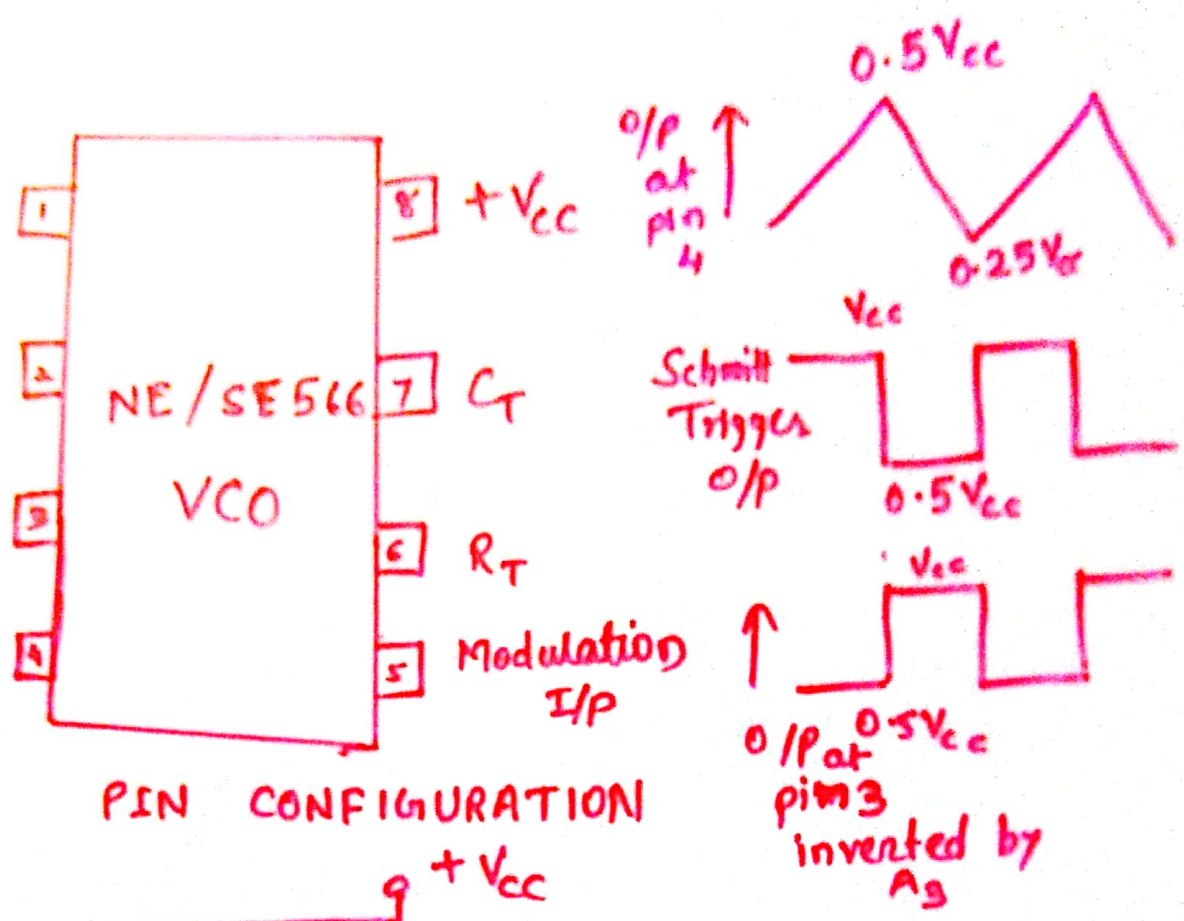 1
2
3
4
NE/SE566
VCO
8 +Vcc
7 CT
6 RT
5 Modulation
I/P
PIN CONFIGURATION
+Vcc
O/P
at
pin
4
0.5Vcc
0.25Vcc
Schmitt
Trigger
O/P
Vcc
0.5Vcc
Vcc
0.5Vcc
O/P at
pin3
inverted by
A3